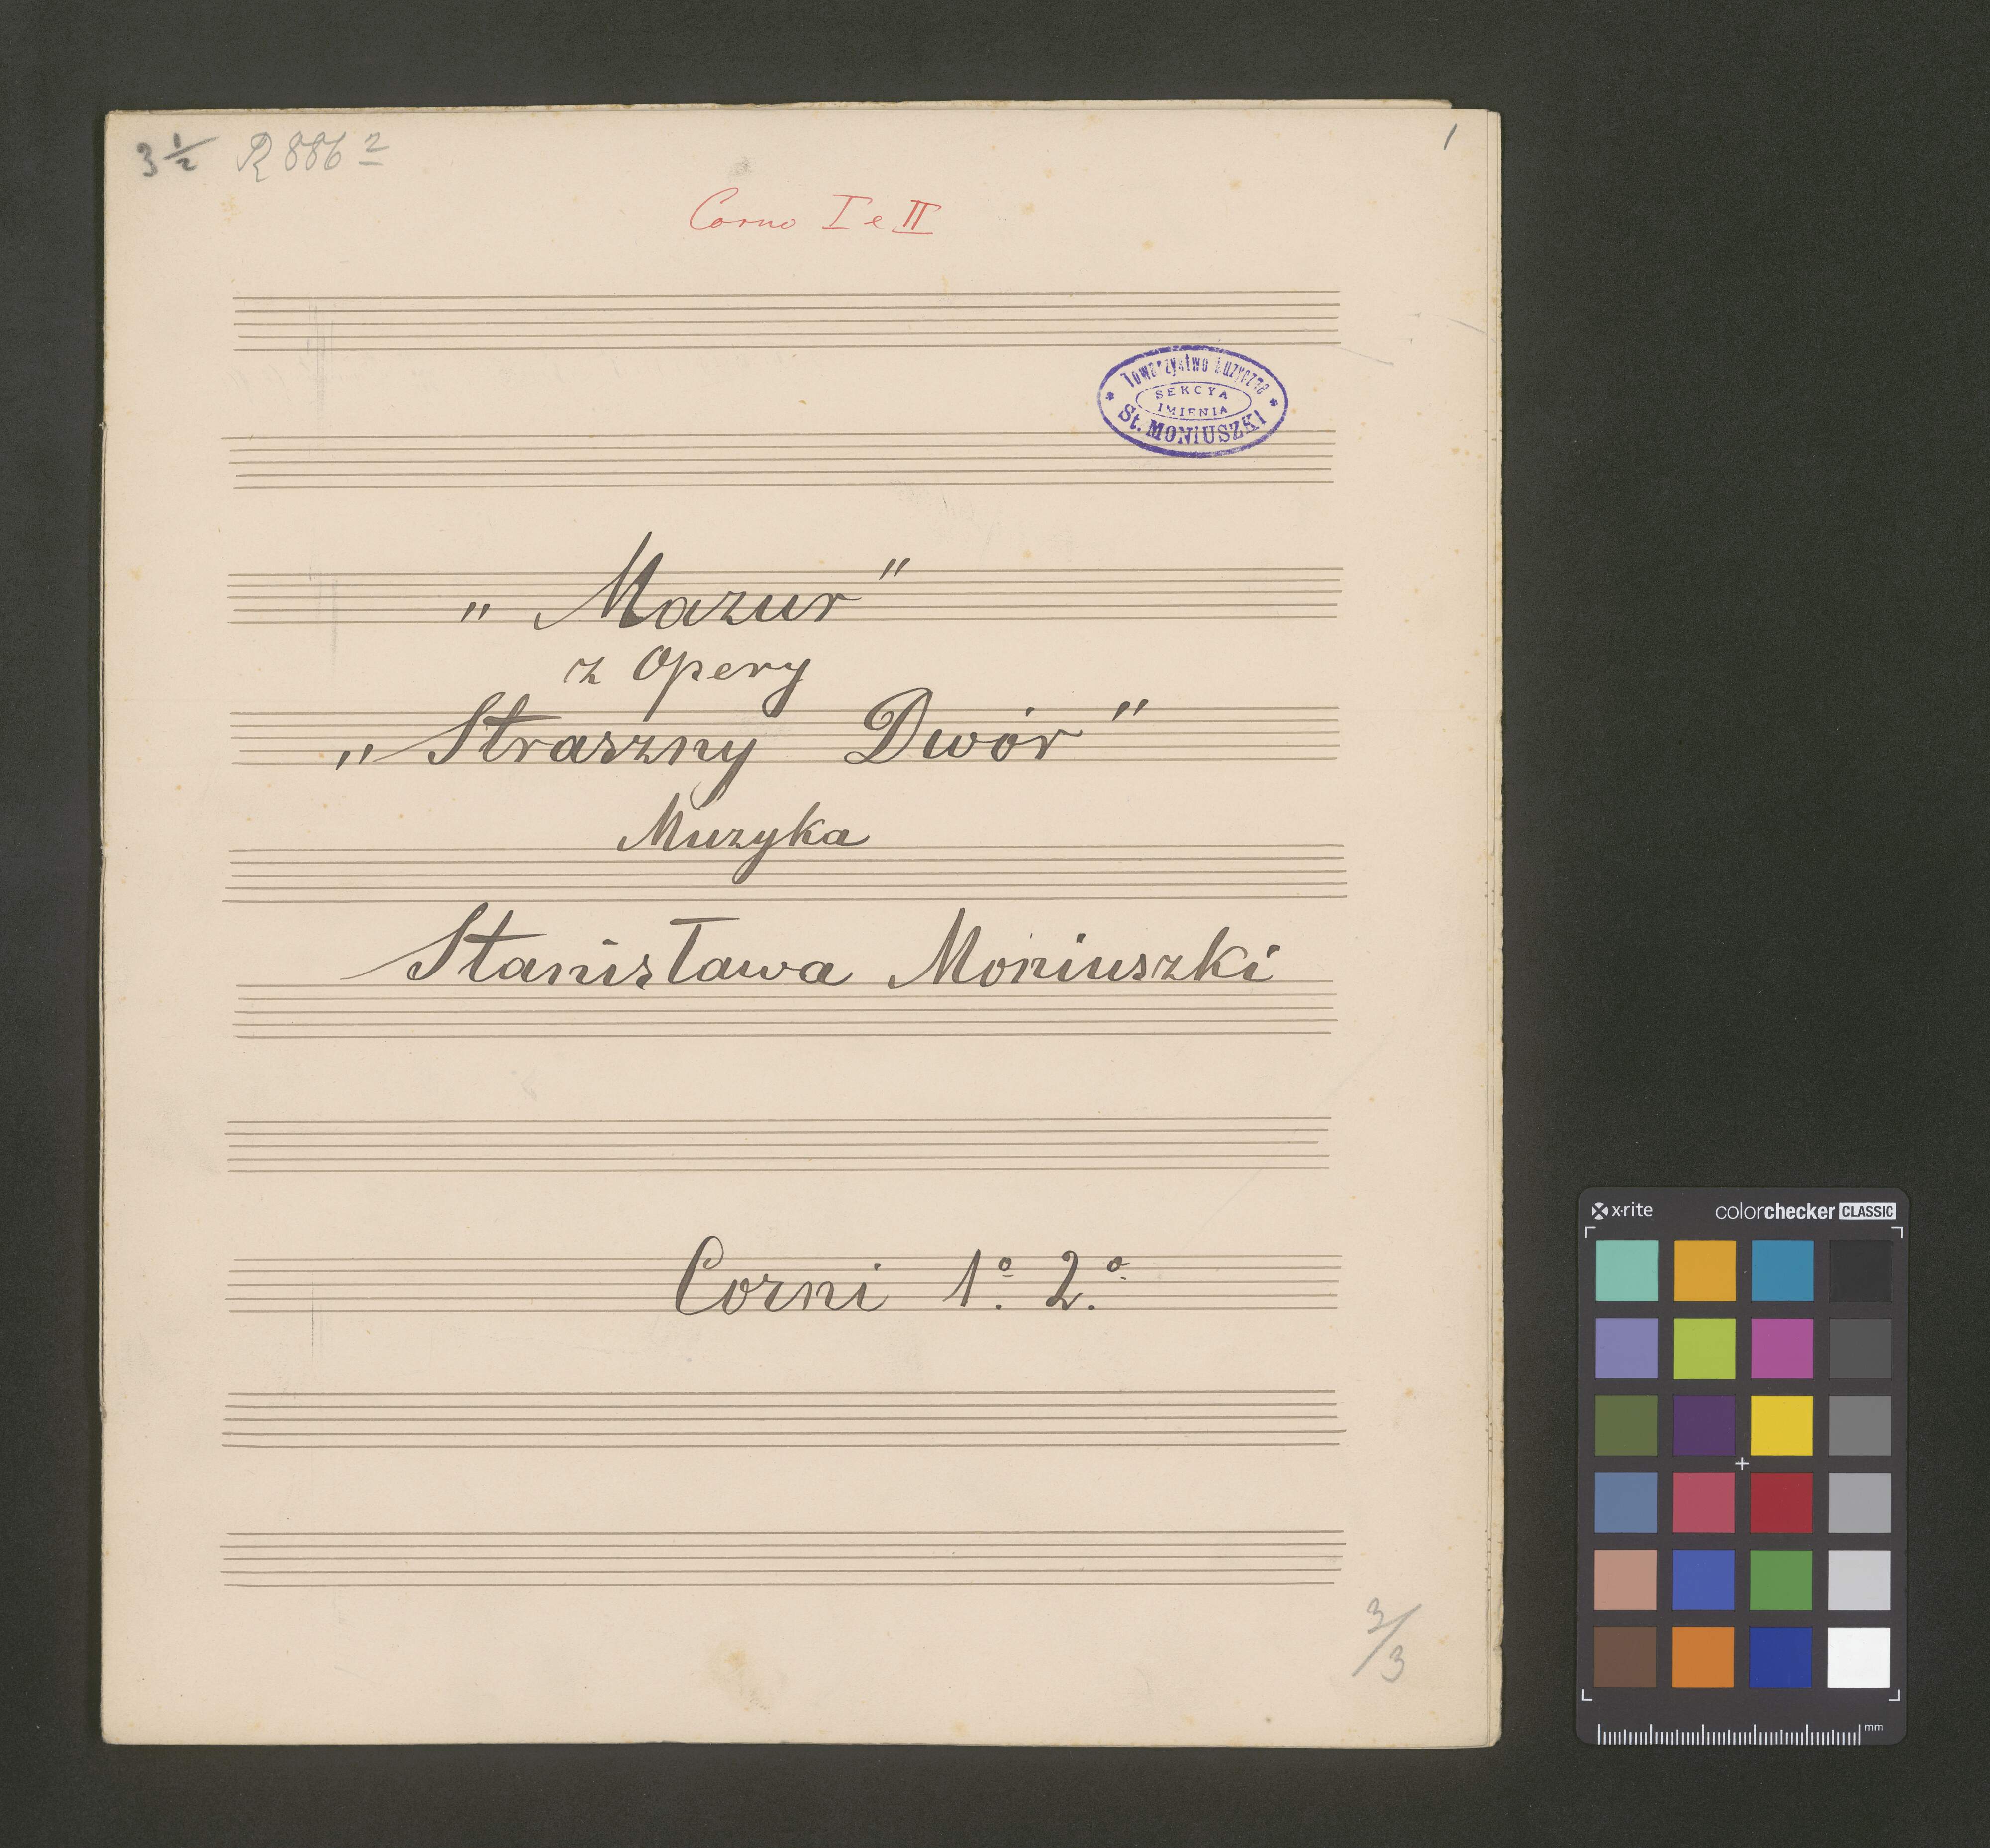 3 1/2 R 886 2
1
Corno I e II
Towarzystwo Muzyczne
SEKCYA
IMIENIA
St. MONIUSZKI
„Mazur"
z Opery
„Straszny Dwór"
Muzyka
Stanisława Moniuszki
Corni 1º. 2º.
3/3
x·rite colorchecker CLASSIC
mm